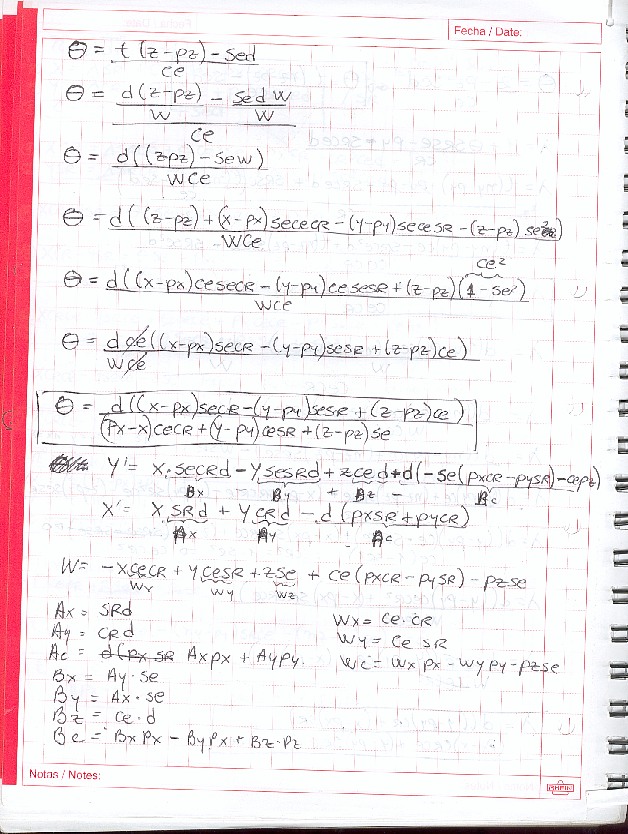 Fecha / Date:
Θ = t(z-pz) - sed / ce
Θ = (d(z-pz)/w - sedw/w) / ce
Θ = d((z-pz) - sew) / wce
Θ = d((z-pz) + (x-px)sececR - (y-py)secesR - (z-pz)se²) / wce
ce²
Θ = d((x-px)cesecR - (y-py)cesesR + (z-pz)(1-se²)) / wce
Θ = dce((x-px)secR - (y-py)sesR + (z-pz)ce) / wce
Θ = d((x-px)secR - (y-py)sesR + (z-pz)ce) / (px-x)cecR + (y-py)cesR + (z-pz)se
Y' = x·secRd - ysesRd + zced + d(-se(pxcR - pysR) - cepz)
Bx By + Bz - Bc
X' = x·sRd + ycRd - d(pxsR + pycR)
Ax Ay Ac
W = -xcecR + ycesR + zse + ce(pxcR - pysR) - pzse
Wx Wy Wz
Ax = sRd Wx = ce·cR
Ay = cRd Wy = ce sR
Ac = Axpx + Aypy Wc = wxpx - wypy - pzse
Bx = Ay·se
By = Ax·se
Bz = ce·d
Bc = Bxpx - Bypx + Bz·pz
Notas / Notes: